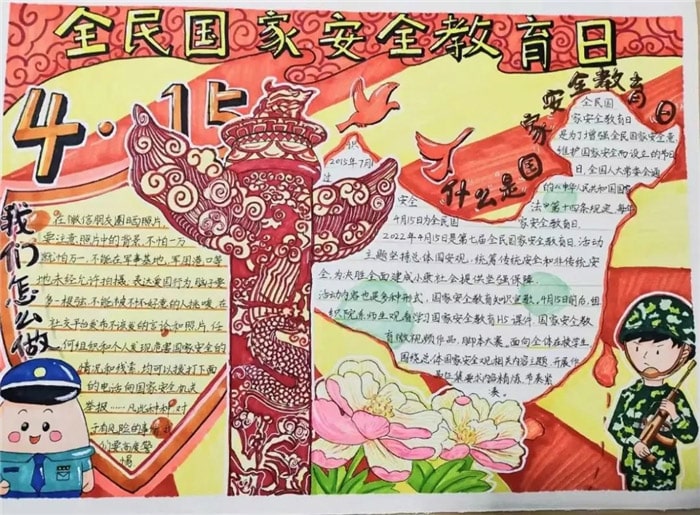 全民国家安全教育日
4·15
我们怎么做
在微信朋友圈晒照片,
要注意照片中的背景,不怕一万
就怕一,不能在军事基地,军用港口等
地未经允许拍摄,表达爱国行为,脑中要
多一根弦,不能被不怀好意的人挑唆,在
社交平台发布不该发的言论和照片,任
何组织和个人发现危害国家安全的
情况和线索,均可以拨打下面
的电话向国家安全机关
举报……凡此种种,对
于有风险的事情
们要高度警
惕
什么是国家安全教育日
全民国
家安全教育日
是为了增强全民国家安全意
维护国家安全而设立的节日
日,全国人大常委会通
2015年7月
过
的《中华人民共和国国
安全
法》第十四条规定,每年
4月15日为全民国
家安全教育日.
2022年4月15日是第七届全民国家安全教育日.活动
主题坚持总体国安观,统筹传统安全和非传统安
全,为决胜全面建成小康社会提供坚强保障.
活动内容也是多种形式,国家安全教育知识宣歌,4月15日前后,组
织院系师生观看学习国家安全教育H5课件.国家安全教
育微视频作品,脚本大赛,面向全体在校学生
围绕总体国家安全观相关内容主题,开展作
品征集要求内容精练,节奏紧
凑.